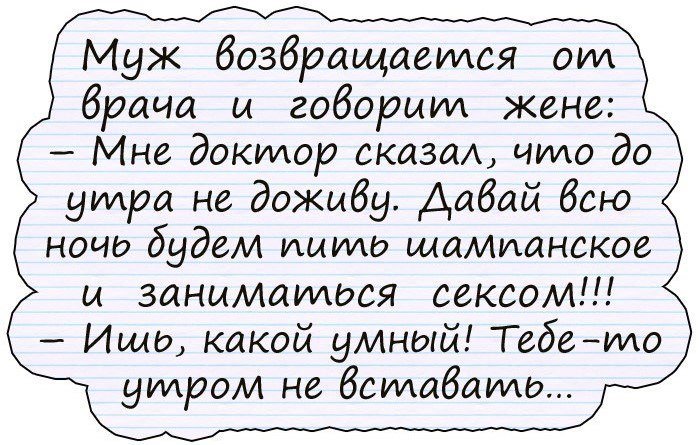 Муж возвращается от
врача и говорит жене:
– Мне доктор сказал, что до
утра не доживу. Давай всю
ночь будем пить шампанское
и заниматься сексом!!!
– Ишь, какой умный! Тебе-то
утром не вставать...